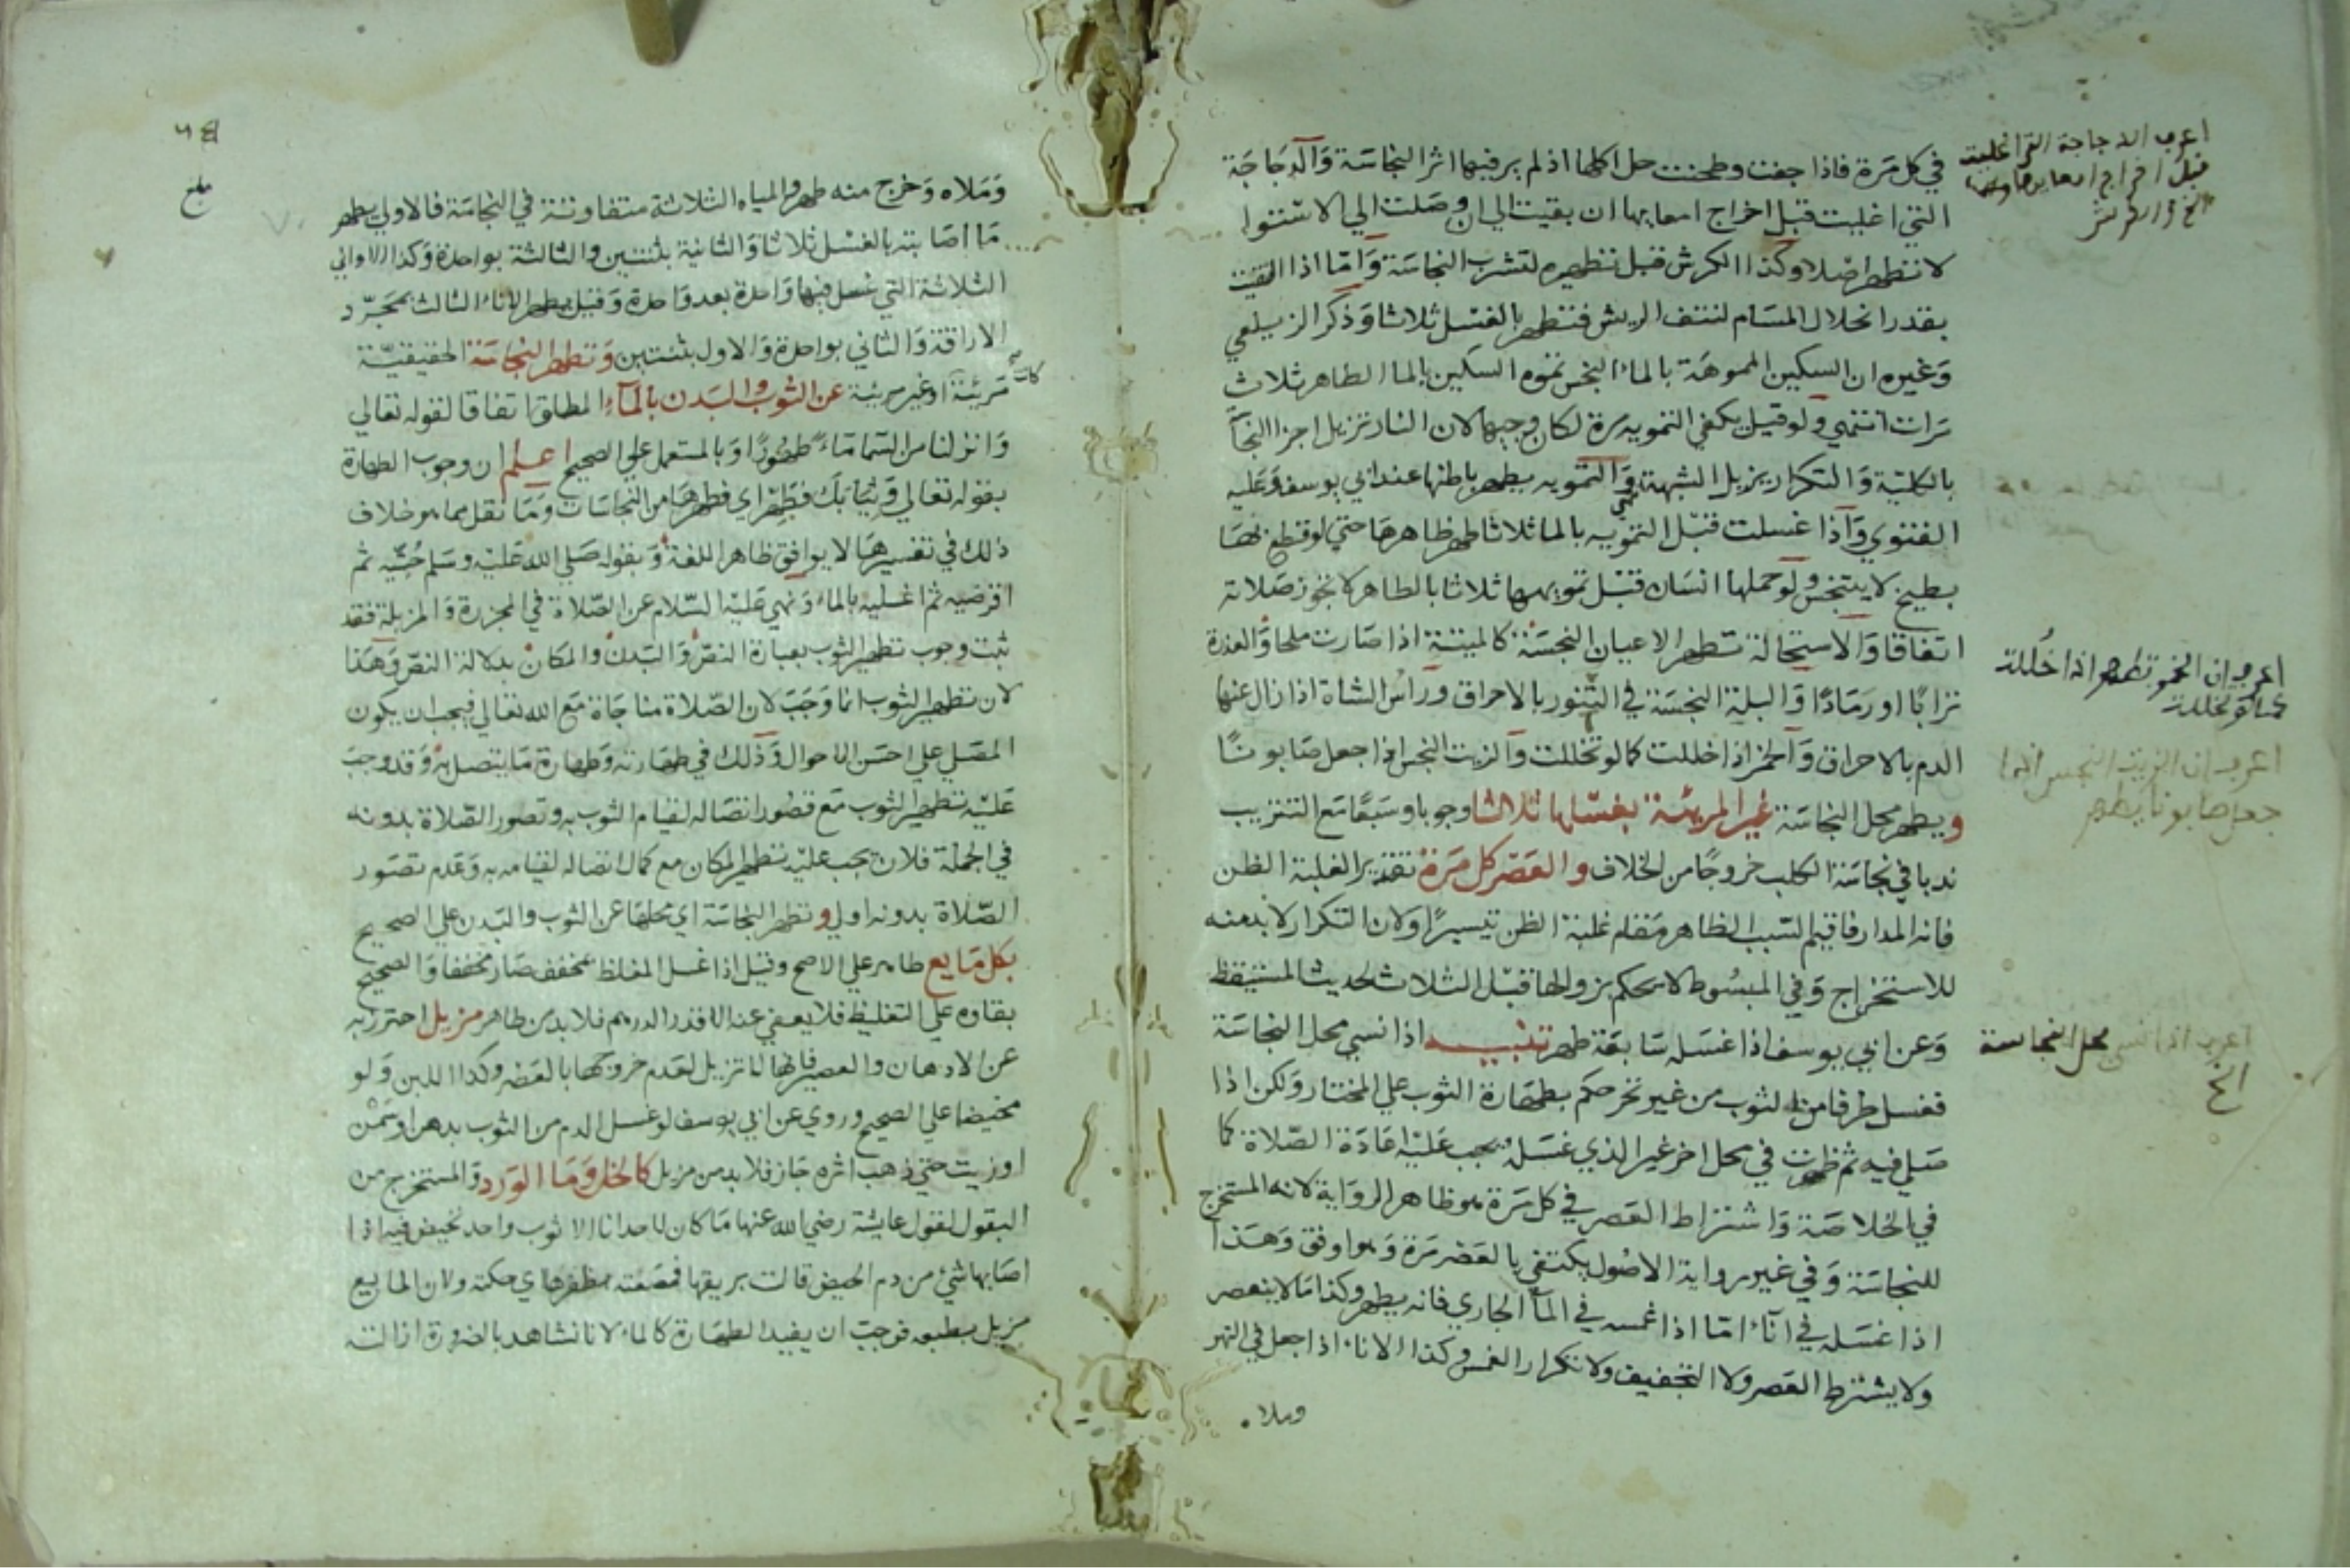 في كل مرة فاذا جفت وطحنت حل اكلها اذ لم ير فيها اثر النجاسة والدجاجة
التي اغليت قبل اخراج امعايها ان بقيت الي ان وصلت الي الاستوا
لا تطهر اصلا وكذا الكرش قبل تطهيره لتشرب النجاسة واما اذا القيت
بقدر انحلال المسام لنتف الريش فتطهر بالغسل ثلاثا وذكر الزيلعي
وغيره ان السكين المموهة بالماء النجس تموه السكين بالما الطاهر ثلاث
مرات انتهي ولو قيل يكفي التمويه مرة لكان وجيها لان النار تزيل اجزا النجا
بالكلية والتكرار يزيل الشبهة والتمويه يطهر باطنها عند ابي يوسف وعليه
الفتوي واذا غسلت قبل التمويه بالما ثلاثا طهر ظاهرها حتي لو قطع بها
بطيخ لا يتنجس ولو حملها انسان قبل تمويهها ثلاثا بالطاهر لا تجوز صلاته
اتفاقا والاستحالة تطهر الاعيان النجسة كالميتة اذا صارت ملحا والعذرة
ترابا او رمادا والبلة النجسة في التنور بالاحراق وراس الشاة اذا زال عنها
الدم بالاحراق والخمر اذا خللت كما لو تخللت والزيت النجس اذا جعل صابونا
ويطهر محل النجاسة غير المريئة بغسلها ثلاثا وجوبا وسبعا مع التتريب
ندبا في نجاسة الكلب خروجا من الخلاف والعصر كل مرة تقديرا لغلبة الظن
فانه المدار فاقيم السبب الظاهر مقام غلبة الظن تيسيرا ولان التكرار لا بد منه
للاستخراج وفي المبسوط لا يحكم بزوالها قبل الثلاث لحديث المستيقظ
وعن ابي يوسف اذا غسله سابغة طهر تنبيه اذا نسي محل النجاسة
فغسل طرفا من الثوب من غير تحر حكم بطهارة الثوب علي المختار ولكن اذا
صلي فيه ثم ظهرت في محل اخر غير الذي غسله يجب عليه اعادة الصلاة كما
في الخلاصة واشتراط العصر في كل مرة هو ظاهر الرواية لانه المستخرج
للنجاسة وفي غير رواية الاصول يكتفي بالعصر مرة وهو اوفق وهذا
اذا غسله في اناء اما اذا غمسه في الماء الجاري فانه يطهر وكذا ما لا ينعصر
ولا يشترط العصر ولا التجفيف ولا تكرار الغمس وكذا الاناء اذا جعل في النهر
وملاه
اعرف الدجاجة التي اغليت
قبل اخراج امعايها
الخ والكرش
اعرف ان الخمر تطهر اذا خللت
كما لو تخللت
اعرف ان الزيت النجس اذا
جعل صابونا يطهر
اعرف اذا نسي محل النجاسة
الخ
بلغ
وملاه وخرج منه طهر والمياه الثلاثة متفاوتة في النجاسة فالاولي يطهر
ما اصابته بالغسل ثلاثا والثانية بثنتين والثالثة بواحدة وكذا الاواني
الثلاثة التي غسل فيها واحدة بعد واحدة وقيل يطهر الاناء الثالث بمجرد
الاراقة والثاني بواحدة والاول بثنتين وتطهر النجاسة الحقيقية
كانت
مريئة او غير مريئة عن الثوب والبدن بالماء المطلق اتفاقا لقوله تعالي
وانزلنا من السما ماء طهورا وبالمستعمل علي الصحيح اعلم ان وجوب الطهارة
بقوله تعالي وثيابك فطهر اي فطهرها من النجاسات وما نقل مما هو خلاف
ذلك في تفسيرها لا يوافق ظاهر اللغة وبقوله صلي الله عليه وسلم حتيه ثم
اقرصيه ثم اغسليه بالماء ونهي عليه السلام عن الصلاة في المجزرة والمزبلة فقد
ثبت وجوب تطهير الثوب بعبارة النص والبدن والمكان بدلالة النص وهذا
لان تطهير الثوب انما وجب لان الصلاة مناجاة مع الله تعالي فيجب ان يكون
المصلي علي احسن الاحوال وذلك في طهارته وطهارة ما يتصل به وقد وجب
عليه تطهير الثوب مع قصور اتصاله لقيام الثوب به وتصور الصلاة بدونه
في الجملة فلان يجب عليه تطهير المكان مع كمال اتصاله لقيامه به وعدم تصور
الصلاة بدونه اولي وتطهر النجاسة اي محلها عن الثوب والبدن علي الصحيح
بكل مايع طاهر علي الاصح وقيل اذا غسل المغلظ بمخفف صار مخففا والصحيح
بقاوه علي التغليظ فلا يعفي عنه الا قدر الدرهم فلا بد من طاهر مزيل احترز به
عن الادهان والعصير فانها لا تزيل لعدم خروجها بالعصر وكذا اللبن ولو
مخيضا علي الصحيح وروي عن ابي يوسف لو غسل الدم من الثوب بدهن او سمن
او زيت حتي ذهب اثره جاز فلا بد من مزيل كالخل وما الورد والمستخرج من
البقول لقول عايشة رضي الله عنها ما كان لاحدانا الا ثوب واحد تحيض فيه اذا
اصابها شئ من دم الحيض قالت بريقها فمصعته بظفرها اي حكته ولان المايع
مزيل بطبعه فوجب ان يفيد الطهارة كالماء لانا نشاهد بالضرورة ازالته